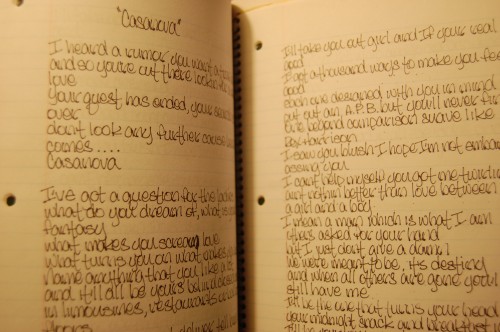 "Casanova"
I heard a rumor you want a
and so you're out there lookin
love
your quest has ended, your
over
don't look any further cause
comes....
Casanova
I've got a question for the
what do you dream of, what is
fantasy
what makes you scream love
what turns you on what
name anything that you like
and it'll all be yours behind
in limousines, restaurants
doors
I'll take you out girl and If your real
good
I got a thousand ways to make you
good
each one designed with you in mind
put out an A.P.B. but you'll never
one beyond comparison suave like
Rex Harrison
I saw you blush I hope I'm not
assing you
I can't help myself you got me
ain't nothin better than love between
a girl and a boy
I mean a man which is what I am
others asked for your hand
but I just don't give a damn!
we were meant to be, its destiny
and when all others are gone you'll
still have me
I'll be the one that turns your head
your midnight snack and breakfast